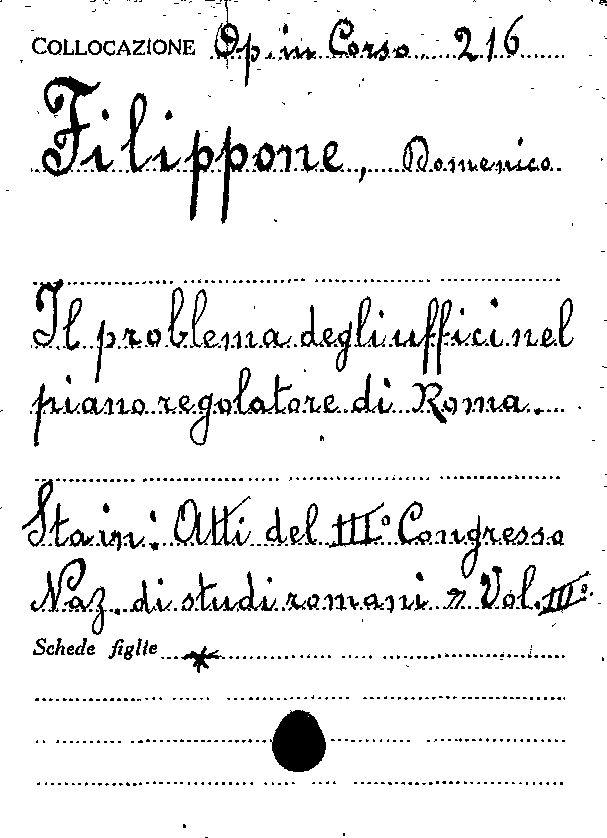 COLLOCAZIONE Op. in Corso 216
Filippone, Domenico
Il problema degli uffici nel
piano regolatore di Roma.
Sta in: Atti del III° Congresso
Naz. di studi romani " Vol. III°.
Schede figlie